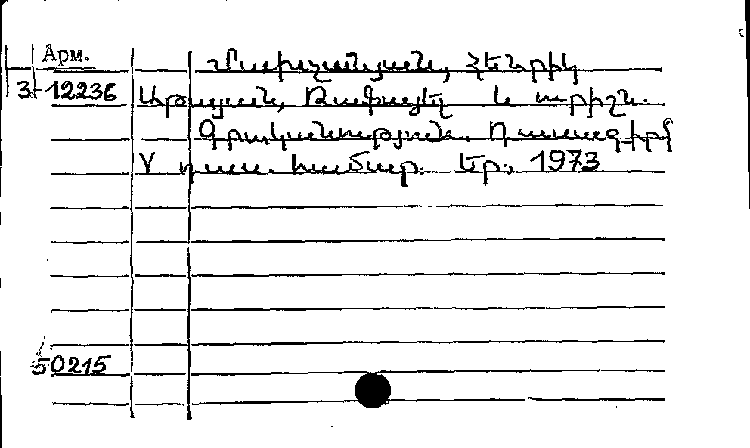 Арм.
Մախչանյան, Հենրիկ
3-12236 Աթայան, Ռաֆայել և ուրիշն.
Գրականություն. Դասագիրք
V դաս. համար. Եր., 1973
50215